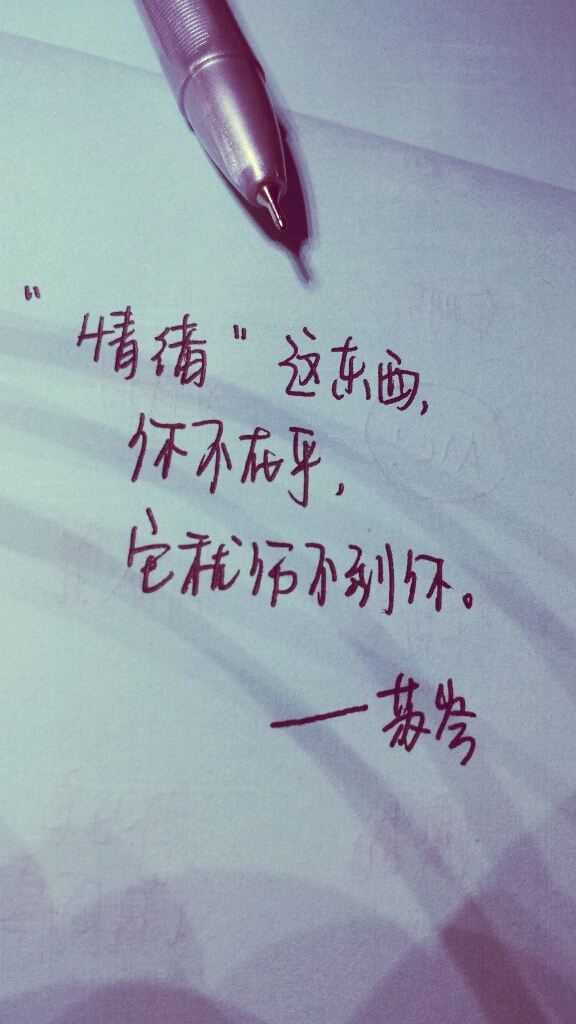 “情绪”这东西,
你不在乎,
它就伤不到你。
——苏岑